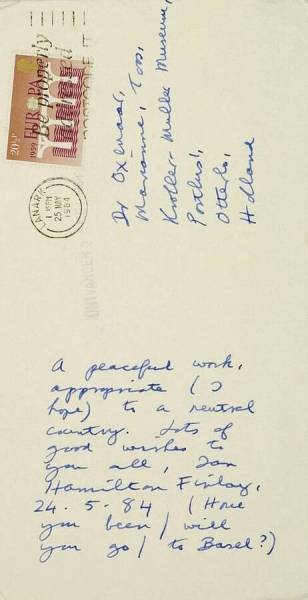 20½P
EUROPA
1959
1984
Be properly
addressed
POSTCODE IT
LANARK
PM
25 MAY
1984
ONTVANGEN
Dr Oxenaar,
Marianne, Toos,
Kroller-Muller Museum,
Postbus,
Otterlo,
Holland
A peaceful work,
appropriate (I
hope) to a neutral
country. Lots of
good wishes to
you all, Ian
Hamilton Finlay,
24.5.84 (Have
you been / will
you go / to Basel?)